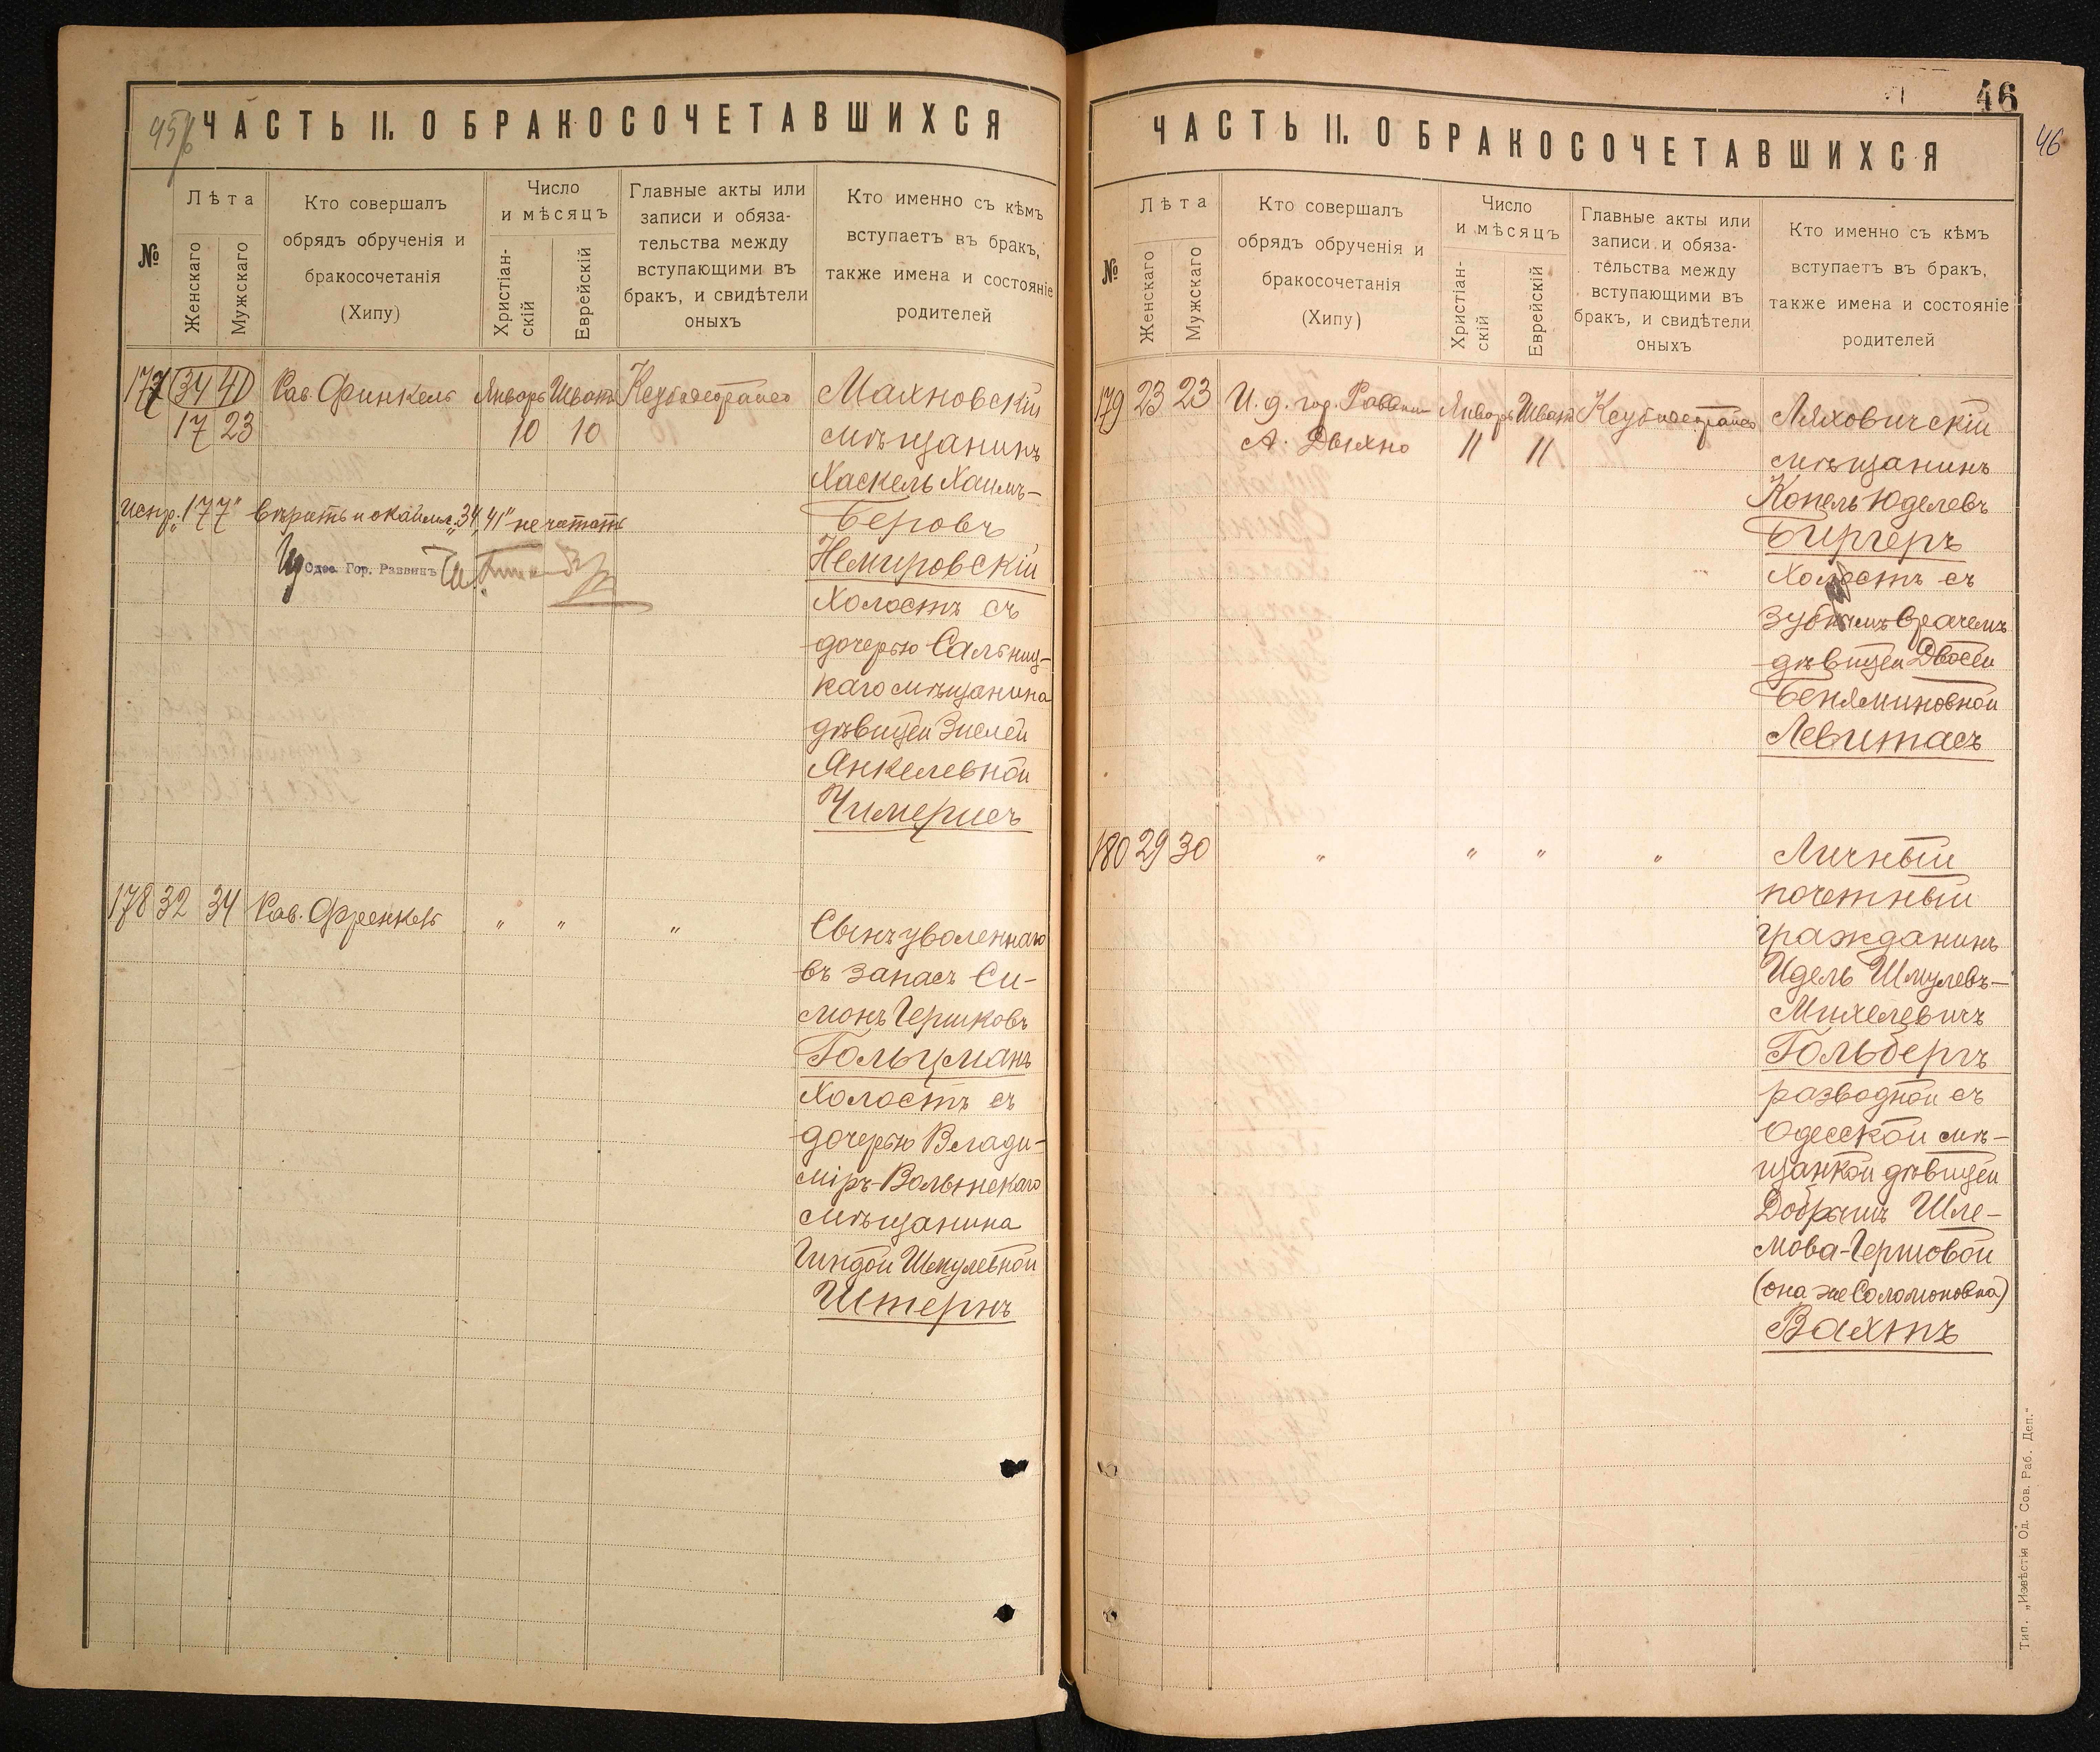 45
ЧАСТЬ II. О БРАКОСОЧЕТАВШИХСЯ
№
Лѣта
Женскаго
Мужскаго
Кто совершалъ
обрядъ обрученія и
бракосочетанія
(Хипу)
Число
и мѣсяцъ
Христіан-
скій
Еврейскій
Главные акты или
записи и обяза-
тельства между
вступающими въ
бракъ, и свидѣтели
оныхъ
Кто именно съ кѣмъ
вступаетъ въ бракъ,
также имена и состояніе
родителей
177 34 40 Рав. Финкель Январь Шватъ
17 23 10 10
Махновскій
мѣщанинъ
Хаскель Хаимъ-
Беровъ
Немировскій
холостъ съ
дочерью Сальниц-
каго мѣщанина
дѣвицей Зислей
Янкелевной
Чимерисъ
Испр. „177" вѣрить и окаймл. „34, 41" не читать
Одес. Гор. Раввинъ
178 32 34 Рав. Френкель „ „ „
Сынъ уволеннаго
въ запасъ Си-
монъ Гершковъ
Гольцманъ
холостъ съ
дочерью Влади-
міръ-Волынскаго
мѣщанина
Гиндой Шмулевной
Штернъ
46
46
ЧАСТЬ II. О БРАКОСОЧЕТАВШИХСЯ
№
Лѣта
Женскаго
Мужскаго
Кто совершалъ
обрядъ обрученія и
бракосочетанія
(Хипу)
Число
и мѣсяцъ
Христіан-
скій
Еврейскій
Главные акты или
записи и обяза-
тельства между
вступающими въ
бракъ, и свидѣтели
оныхъ
Кто именно съ кѣмъ
вступаетъ въ бракъ,
также имена и состояніе
родителей
179 23 23 И. д. гор. Раввина Январь Шватъ
А. Дыхно 11 11
Ляховичскій
мѣщанинъ
Копель Юделевъ
Биргеръ
холостъ съ
зубнымъ врачемъ
дѣвицей Двосей
Беняминовной
Левитасъ
180 29 30 „ „ „ „
Личный
почетный
гражданинъ
Идель Шмулевъ-
Михелевичъ
Гольбергъ
разводной съ
Одесской мѣ-
щанкой дѣвицей
Добрышъ Шле-
мова-Гершовой
(она же Соломоновна)
Вахтъ
Тип. „Извѣстія Од. Сов. Раб. Деп."